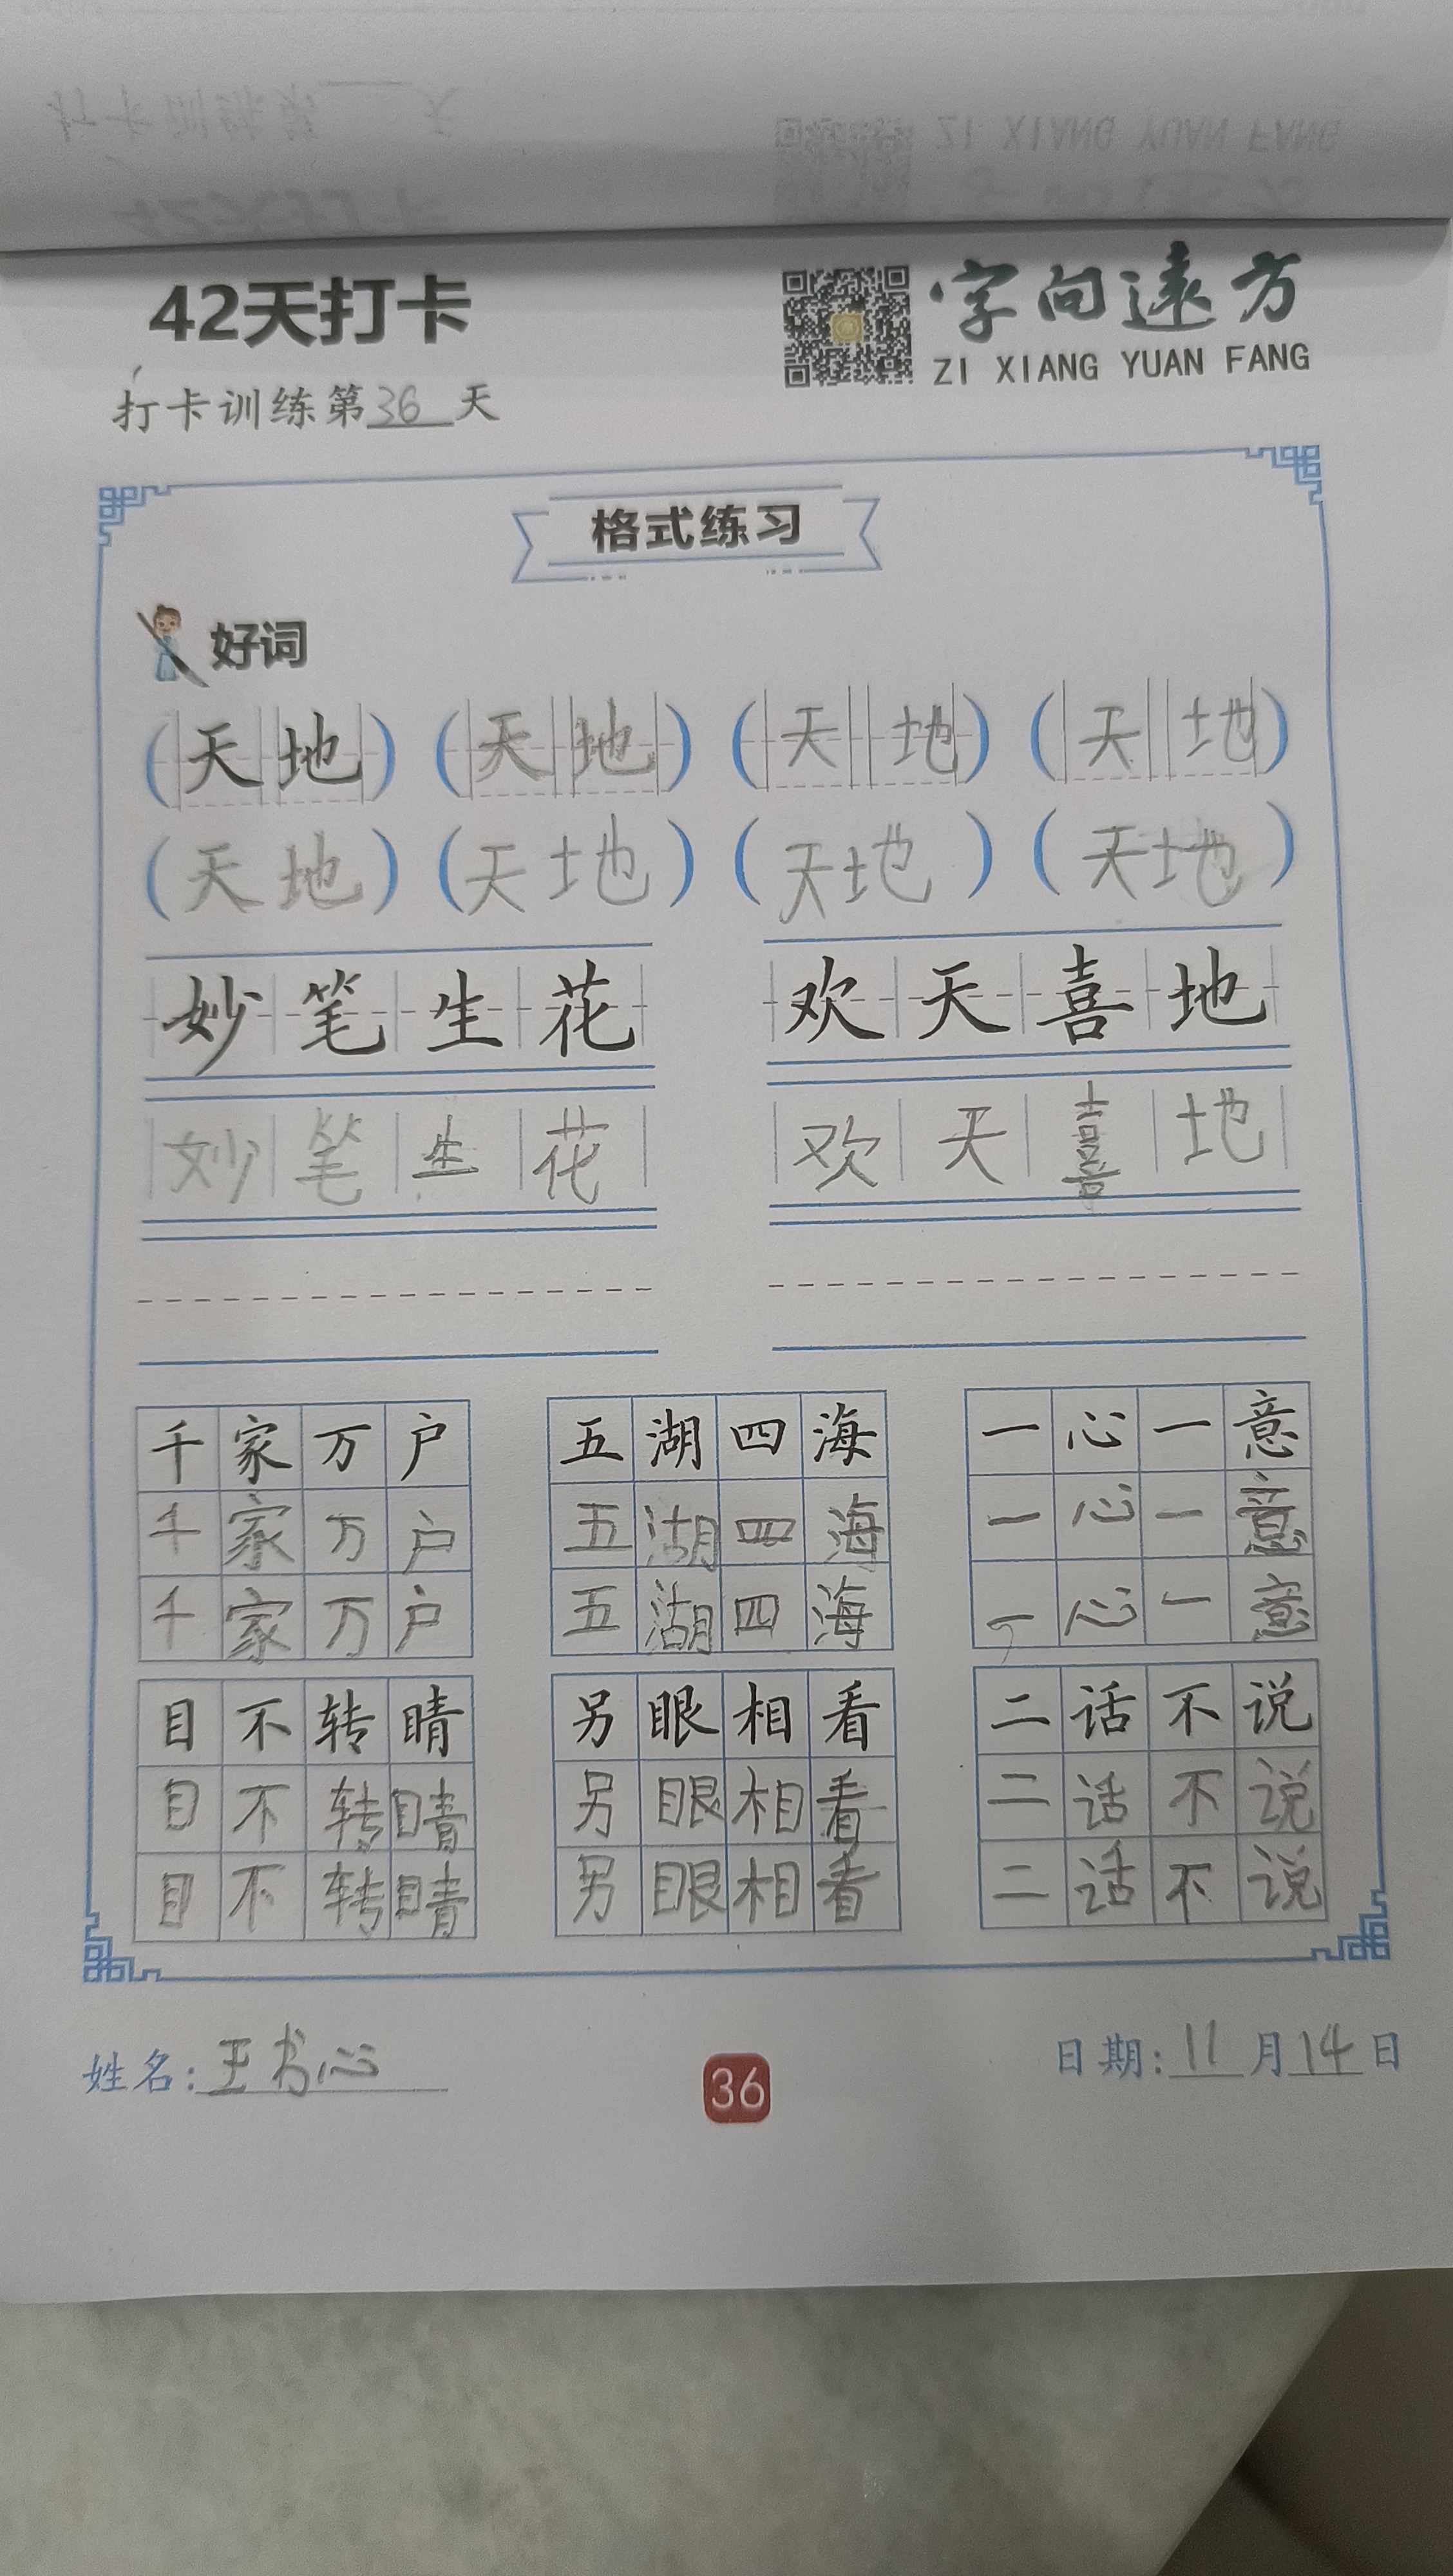 42天打卡
字向遠方
ZI XIANG YUAN FANG
打卡训练第36天
格式练习
好词
(天地) (天地) (天地) (天地)
(天地) (天地) (天地) (天地)
妙笔生花 欢天喜地
妙笔生花 欢天喜地
千家万户 五湖四海 一心一意
千家万户 五湖四海 一心一意
千家万户 五湖四海 一心一意
目不转睛 另眼相看 二话不说
目不转睛 另眼相看 二话不说
目不转睛 另眼相看 二话不说
姓名:王书心 36 日期:11月14日